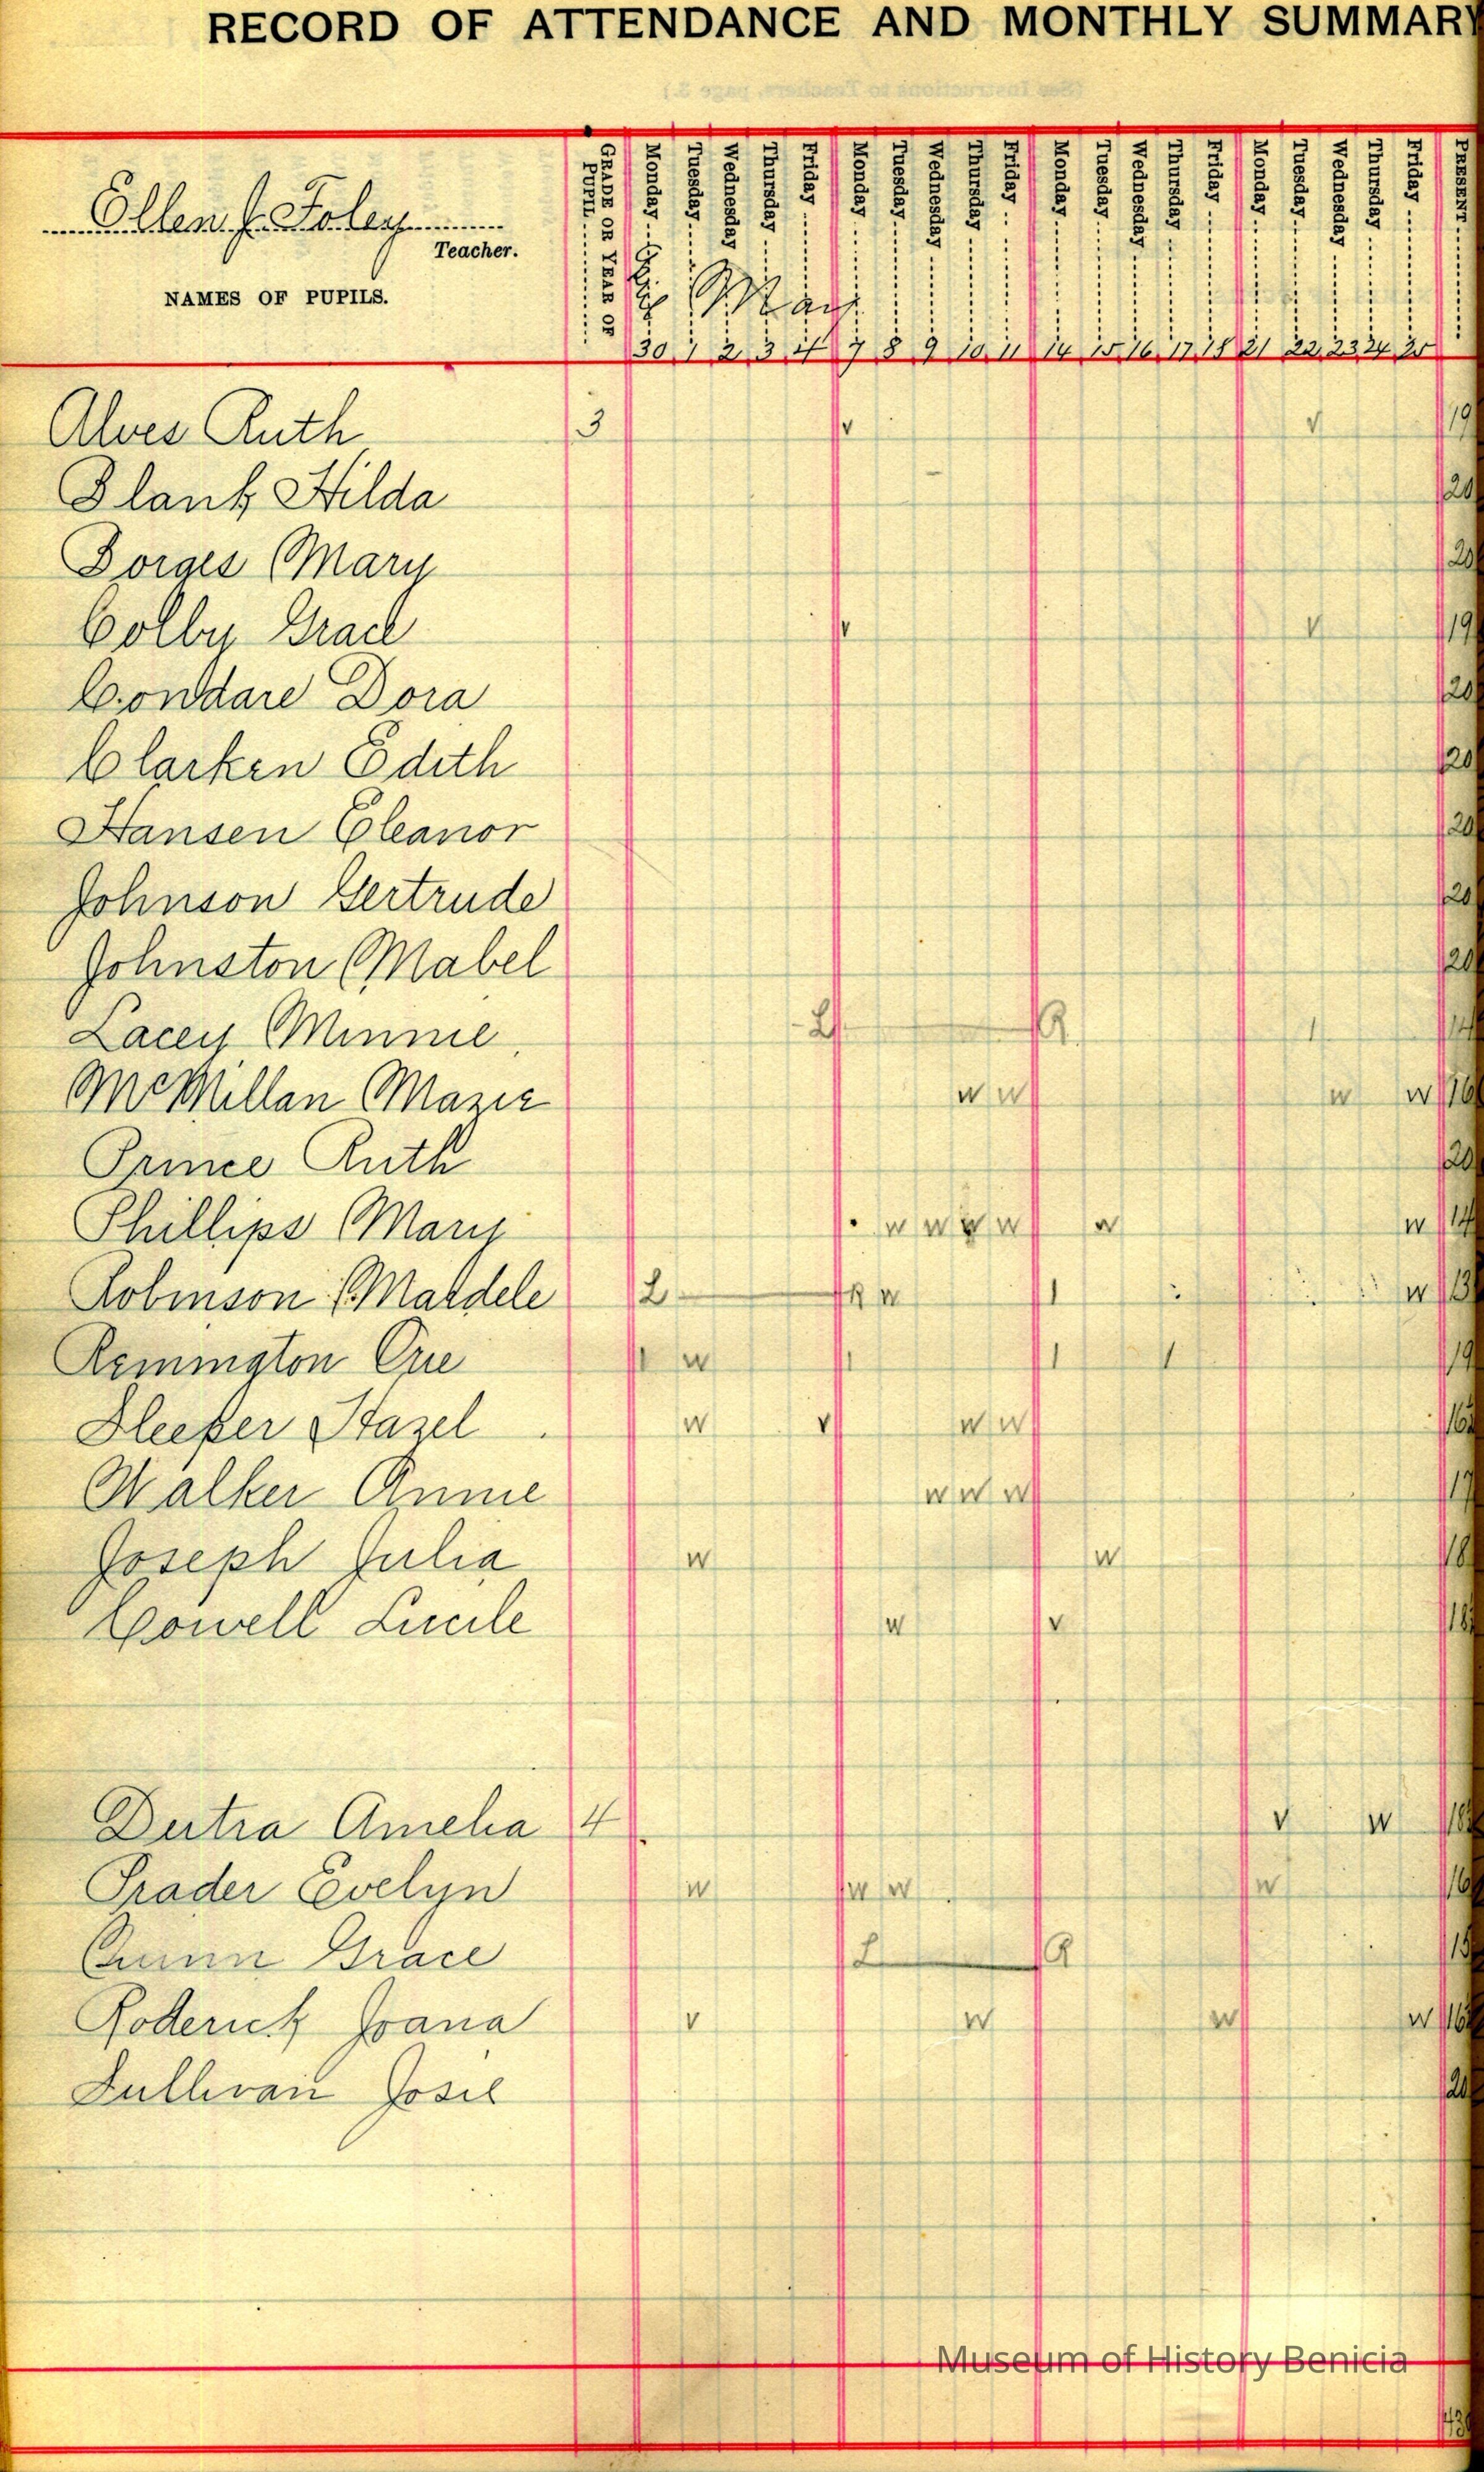 RECORD OF ATTENDANCE AND MONTHLY SUMMARY
(See Instructions to Teachers, page 3.)
Ellen J. Foley
Teacher.
NAMES OF PUPILS.
GRADE OR YEAR OF PUPIL
Monday Tuesday Wednesday Thursday Friday Monday Tuesday Wednesday Thursday Friday Monday Tuesday Wednesday Thursday Friday Monday Tuesday Wednesday Thursday Friday PRESENT
May
30 1 2 3 4 7 8 9 10 11 14 15 16 17 18 21 22 23 24 25
Alves Ruth 3 v v 19
Blank Hilda - 20
Borges Mary 20
Colby Grace v v 19
Condare Dora 20
Clarken Edith 20
Hansen Eleanor 20
Johnson Gertrude 20
Johnston Mabel 20
Lacey Minnie L R 1 14
McMillan Mazie w w w w 16
Prince Ruth 20
Phillips Mary w w w w w w 14
Robinson Mardele L R w 1 w 13
Remington Orie 1 w 1 1 1 19
Sleeper Hazel w v w w 16
Walker Annie w w w 17
Joseph Julia w w 18
Cowell Lucile w v 18
Dutra Amelia 4 v w 18
Prader Evelyn w w w w 16
Quinn Grace L R 15
Roderick Joana v w w w 16
Sullivan Josie 20
Museum of History Benicia